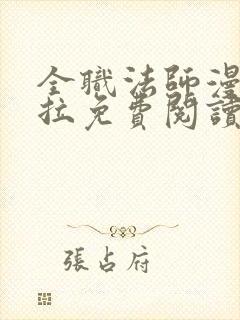 全職法師漫
拉免費閱讀
張占府